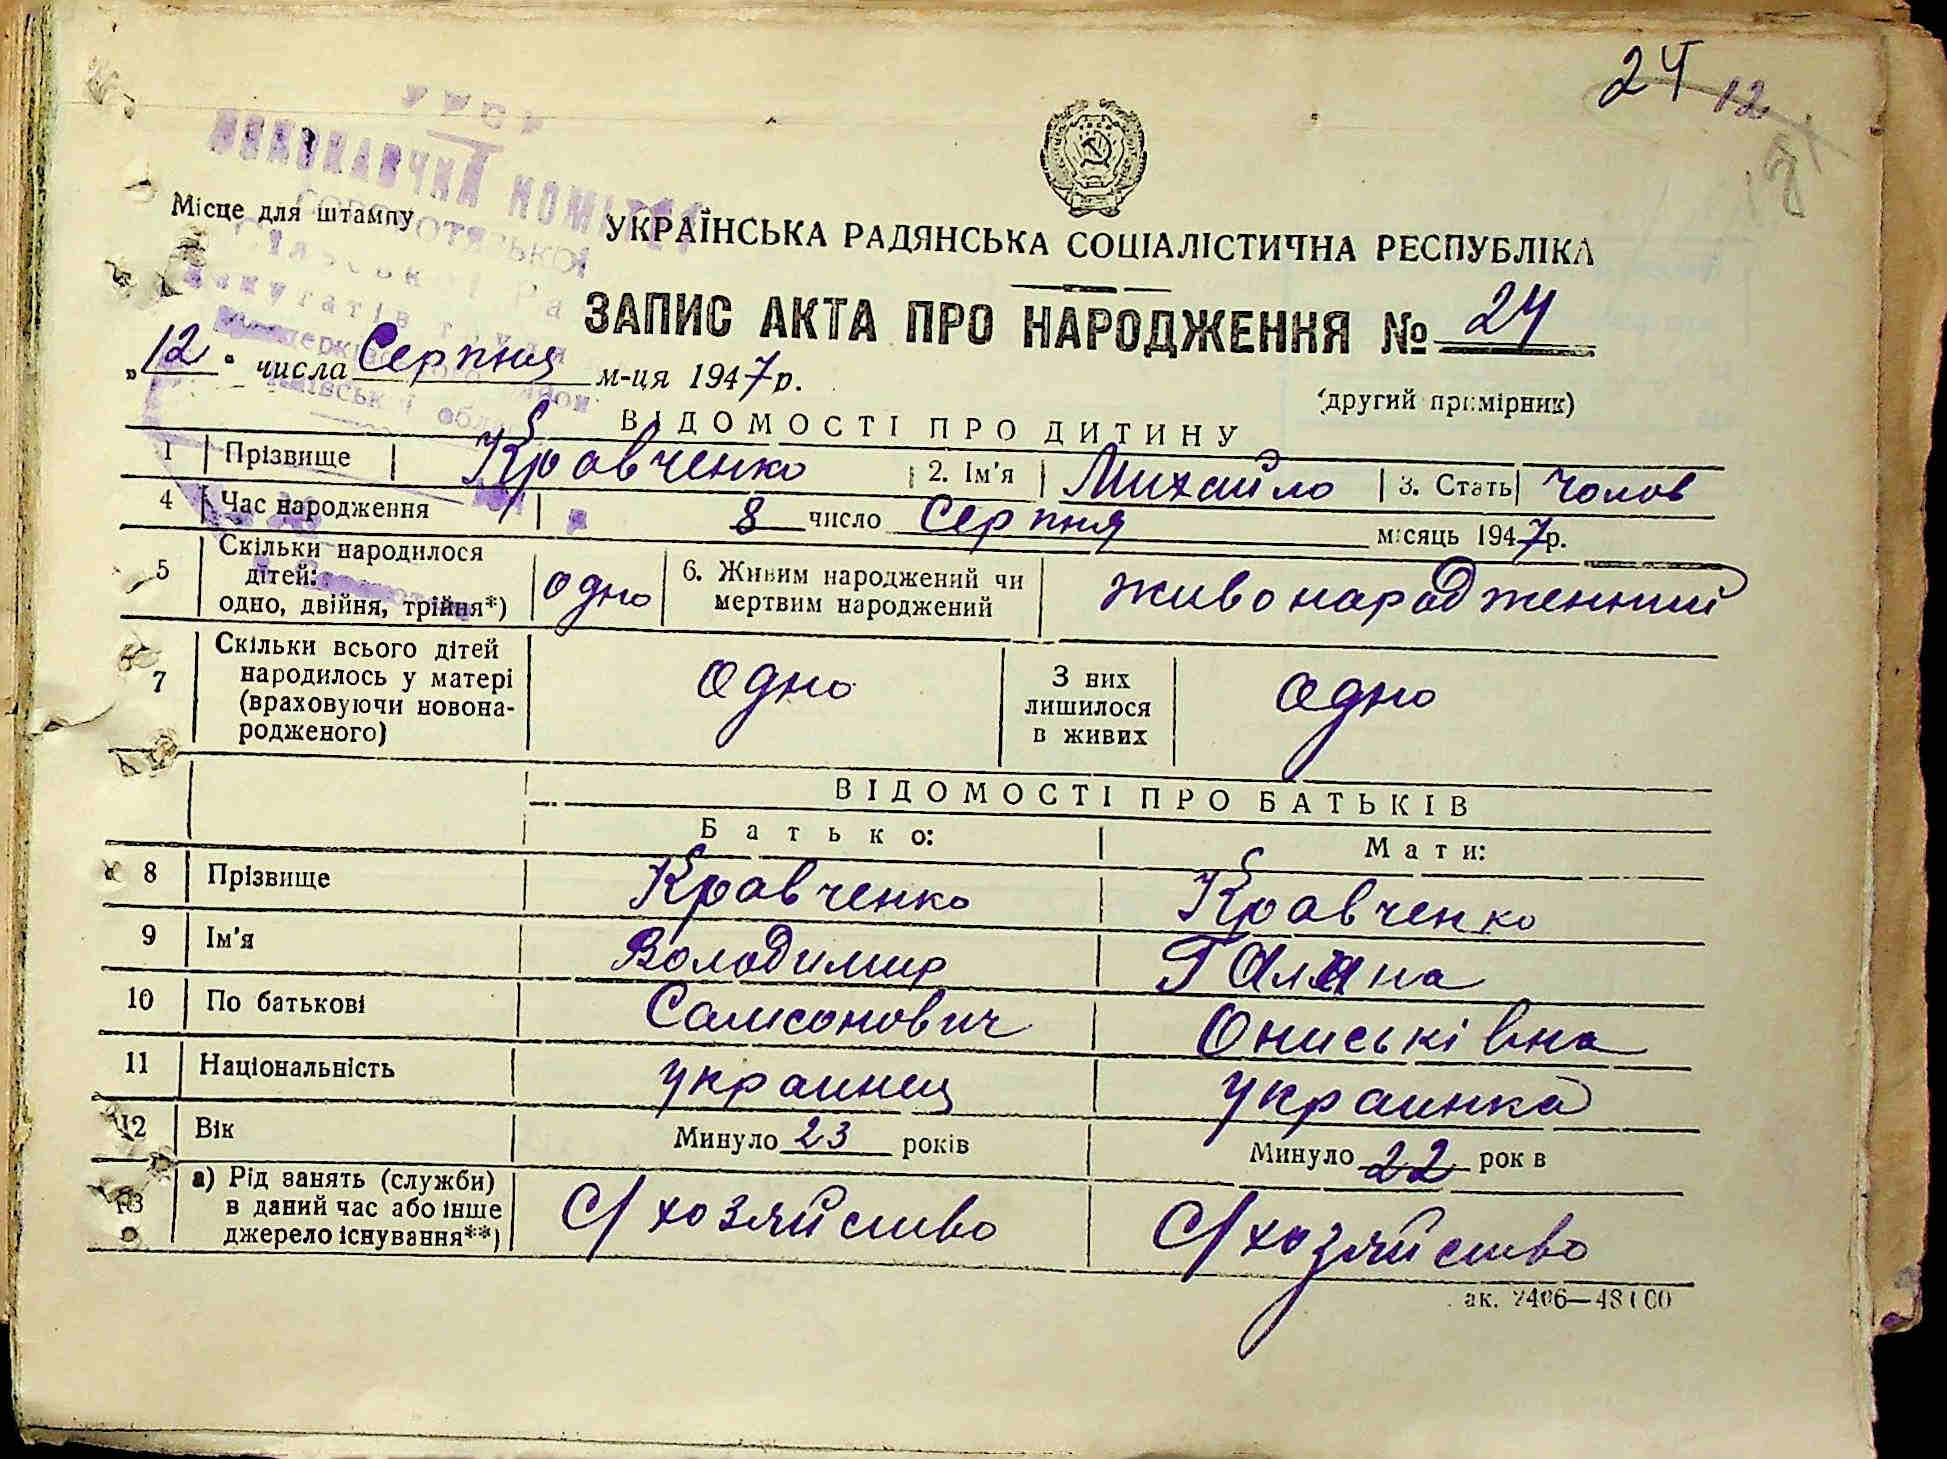 24 12
УРСР
ВИКОНАВЧИЙ КОМІТЕТ
Місце для штампу
УКРАЇНСЬКА РАДЯНСЬКА СОЦІАЛІСТИЧНА РЕСПУБЛІКА
ЗАПИС АКТА ПРО НАРОДЖЕННЯ № 24
„12" числа Серпня м-ця 1947 р.
(другий примірник)
ВІДОМОСТІ ПРО ДИТИНУ
1 Прізвище Кравченко 2. Ім'я Михайло 3. Стать Чолов
4 Час народження 8 число Серпня місяць 1947 р.
5 Скільки народилося
дітей:
одно, двійня, трійня*)
одно
6. Живим народжений чи
мертвим народжений
живонародженний
7 Скільки всього дітей
народилось у матері
(враховуючи новона-
родженого)
одно
З них
лишилося
в живих
одно
ВІДОМОСТІ ПРО БАТЬКІВ
Батько: Мати:
8 Прізвище Кравченко Кравченко
9 Ім'я Володимир Галина
10 По батькові Самсонович Ониськівна
11 Національність украинец украинка
12 Вік Минуло 23 років Минуло 22 рок в
13 а) Рід занять (служби)
в даний час або інше
джерело існування**)
с/хозяйство с/хозяйство